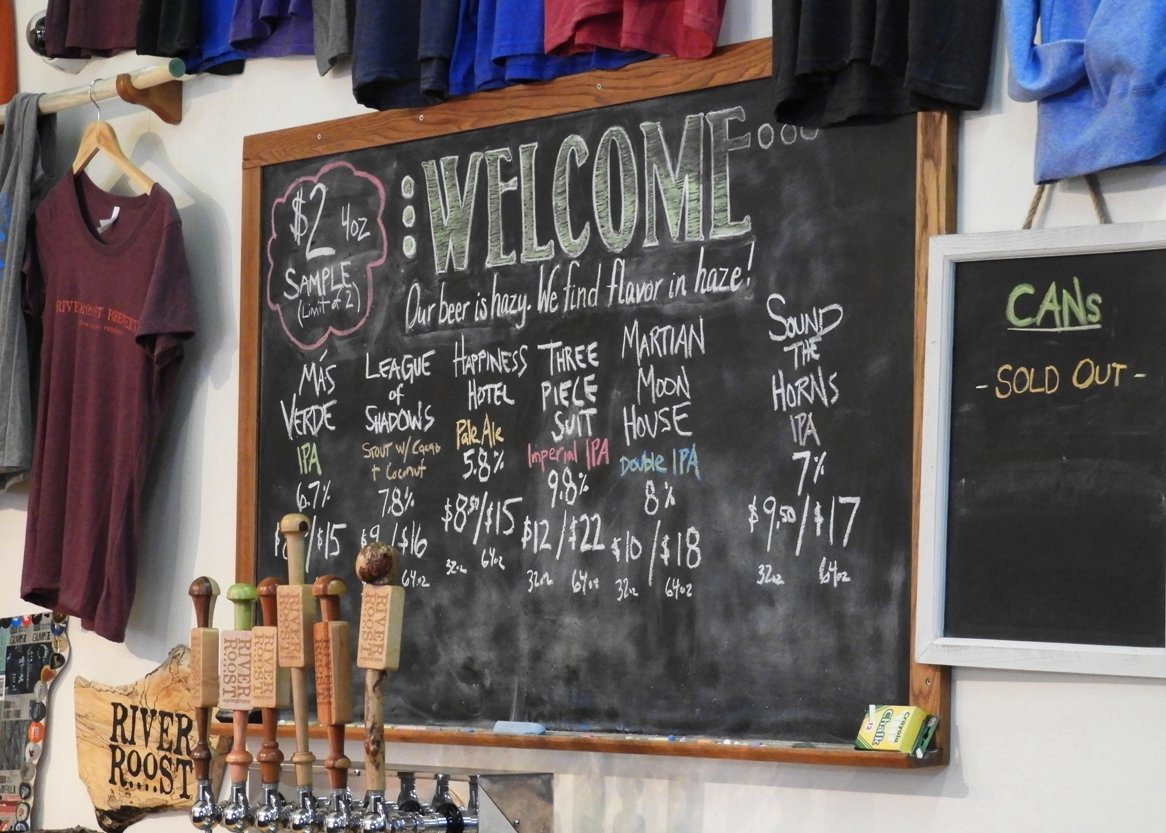 $2 4oz
SAMPLE
(Limit of 2)
WELCOME...
Our beer is hazy. We find flavor in haze!
MÁS
VERDE
IPA
6.7%
/$15
LEAGUE
of
SHADOWS
Stout w/ Cacao
+ Coconut
7.8%
$9 /$16
64oz
HAPPINESS
HOTEL
Pale Ale
5.8%
$8.50/$15
32oz 64oz
THREE
PIECE
SUIT
Imperial IPA
9.8%
$12/$22
32oz 64oz
MARTIAN
MOON
HOUSE
Double IPA
8%
$10/$18
32oz 64oz
SOUND
THE
HORNS
IPA
7%
$9.50/$17
32oz 64oz
CANs
- SOLD OUT -
RIVER
ROOST
RIVER
ROOST
RIVER
ROOST
RIVER
ROOST
RIVER
ROOST
RIVER
ROOST
Crayola
Chalk
12